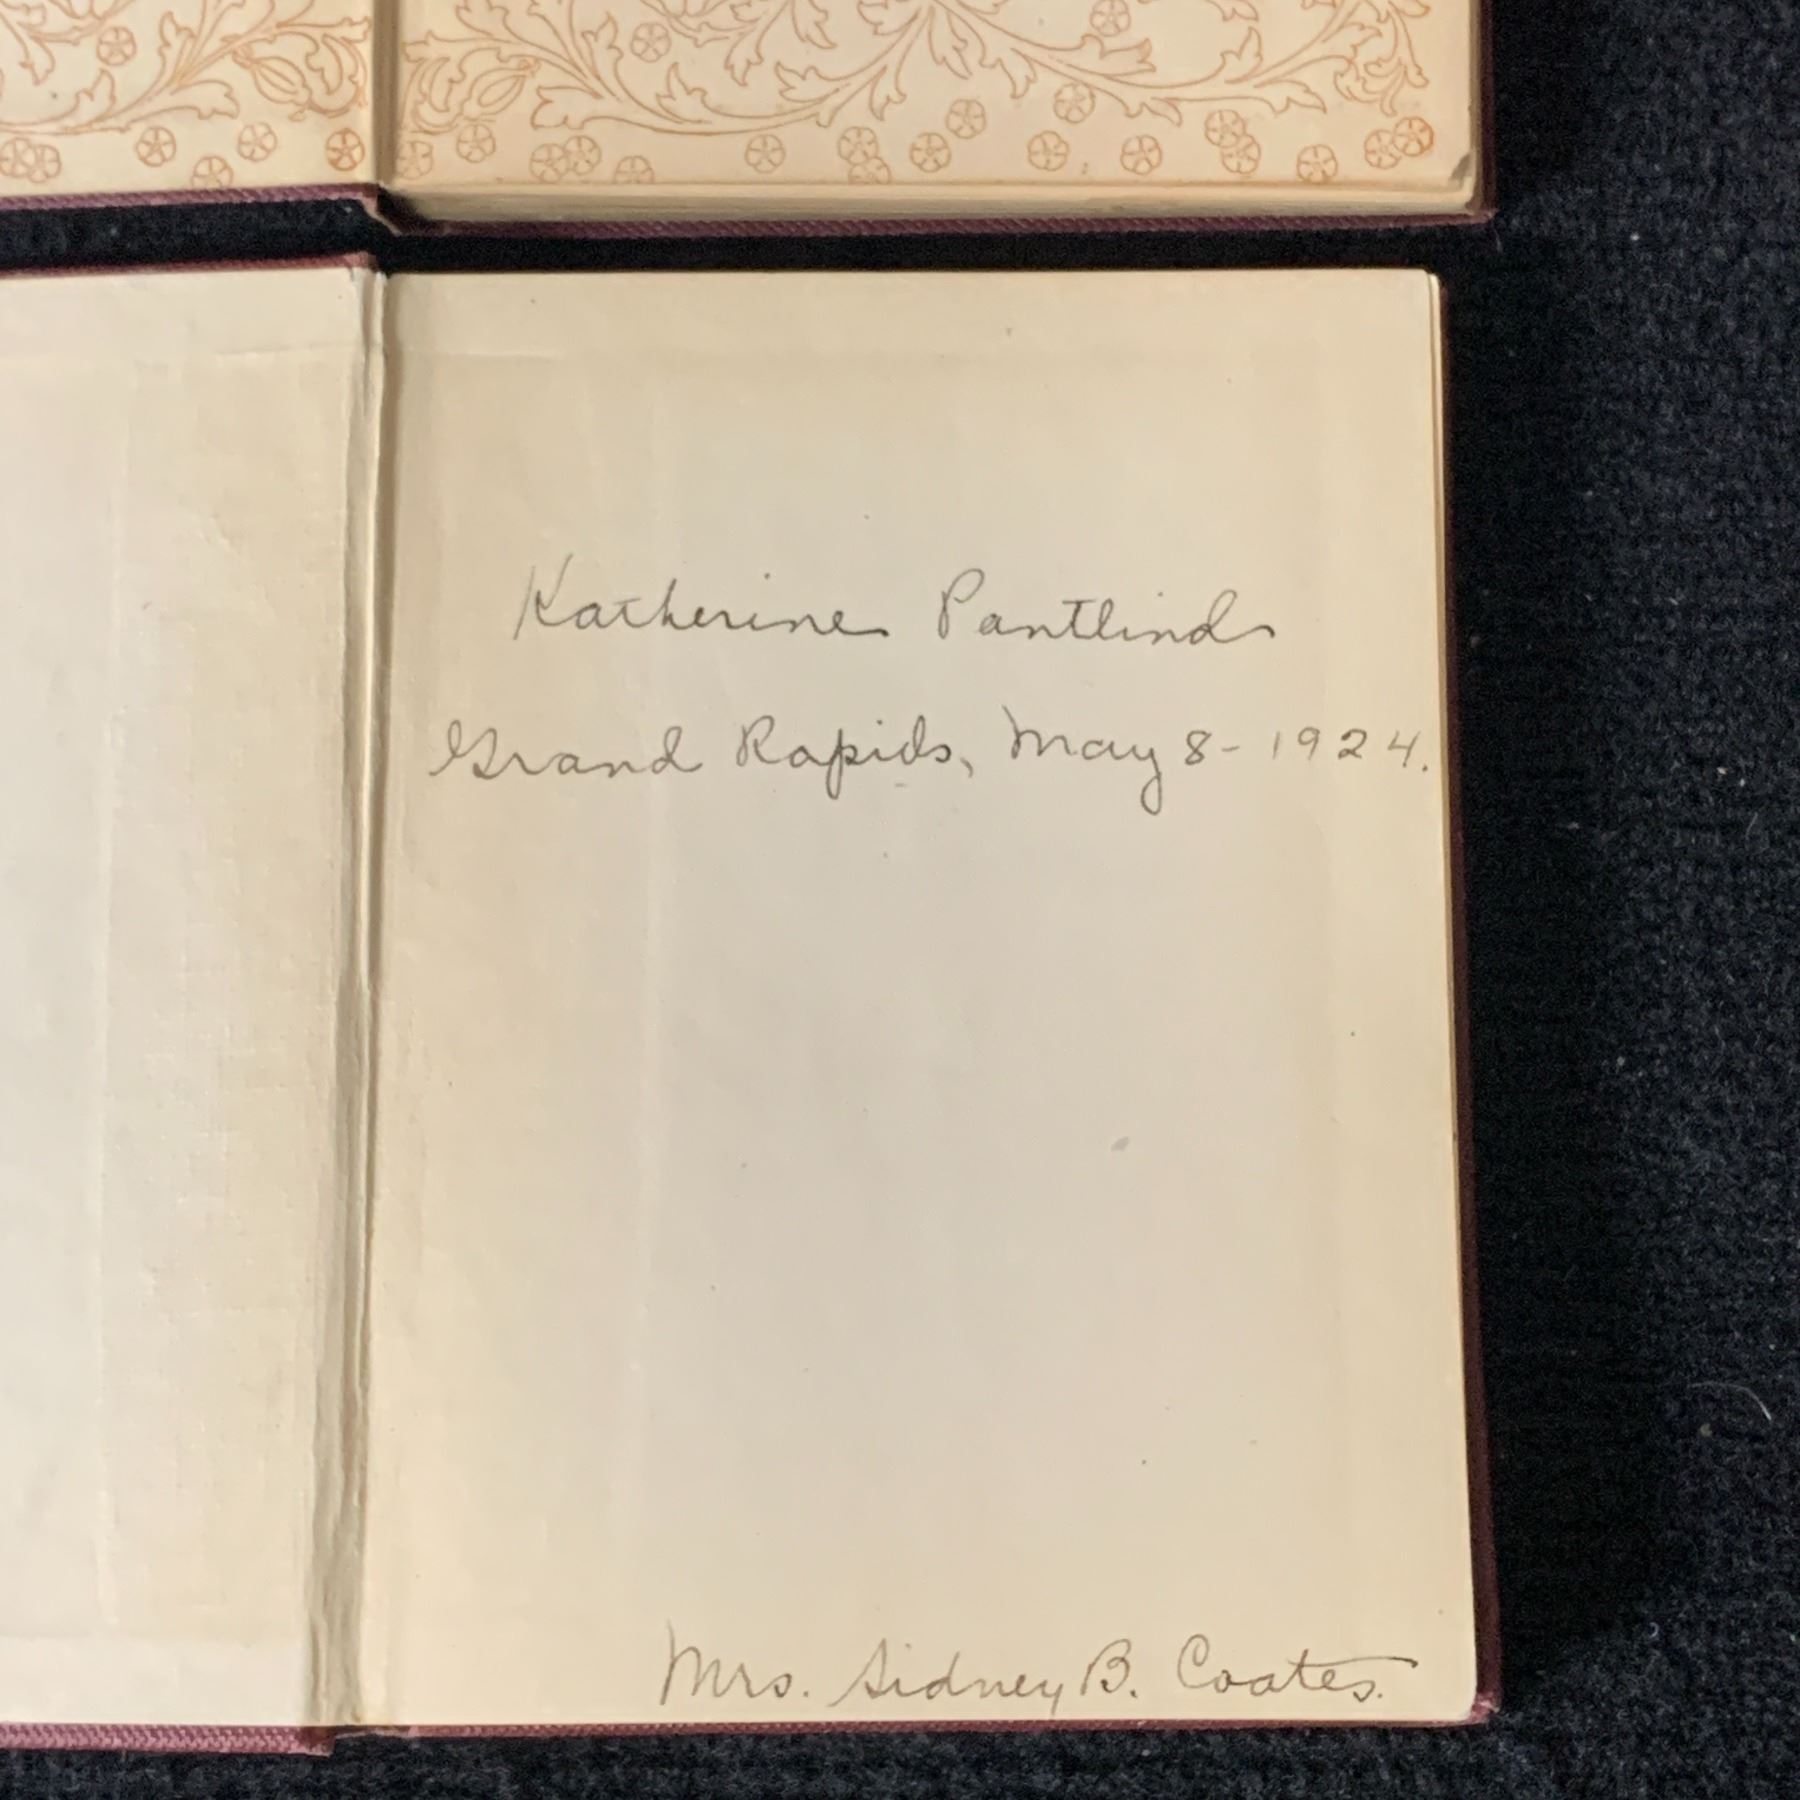 Katherine Pantlind
Grand Rapids, May 8-1924.
Mrs. Sidney B. Coates.